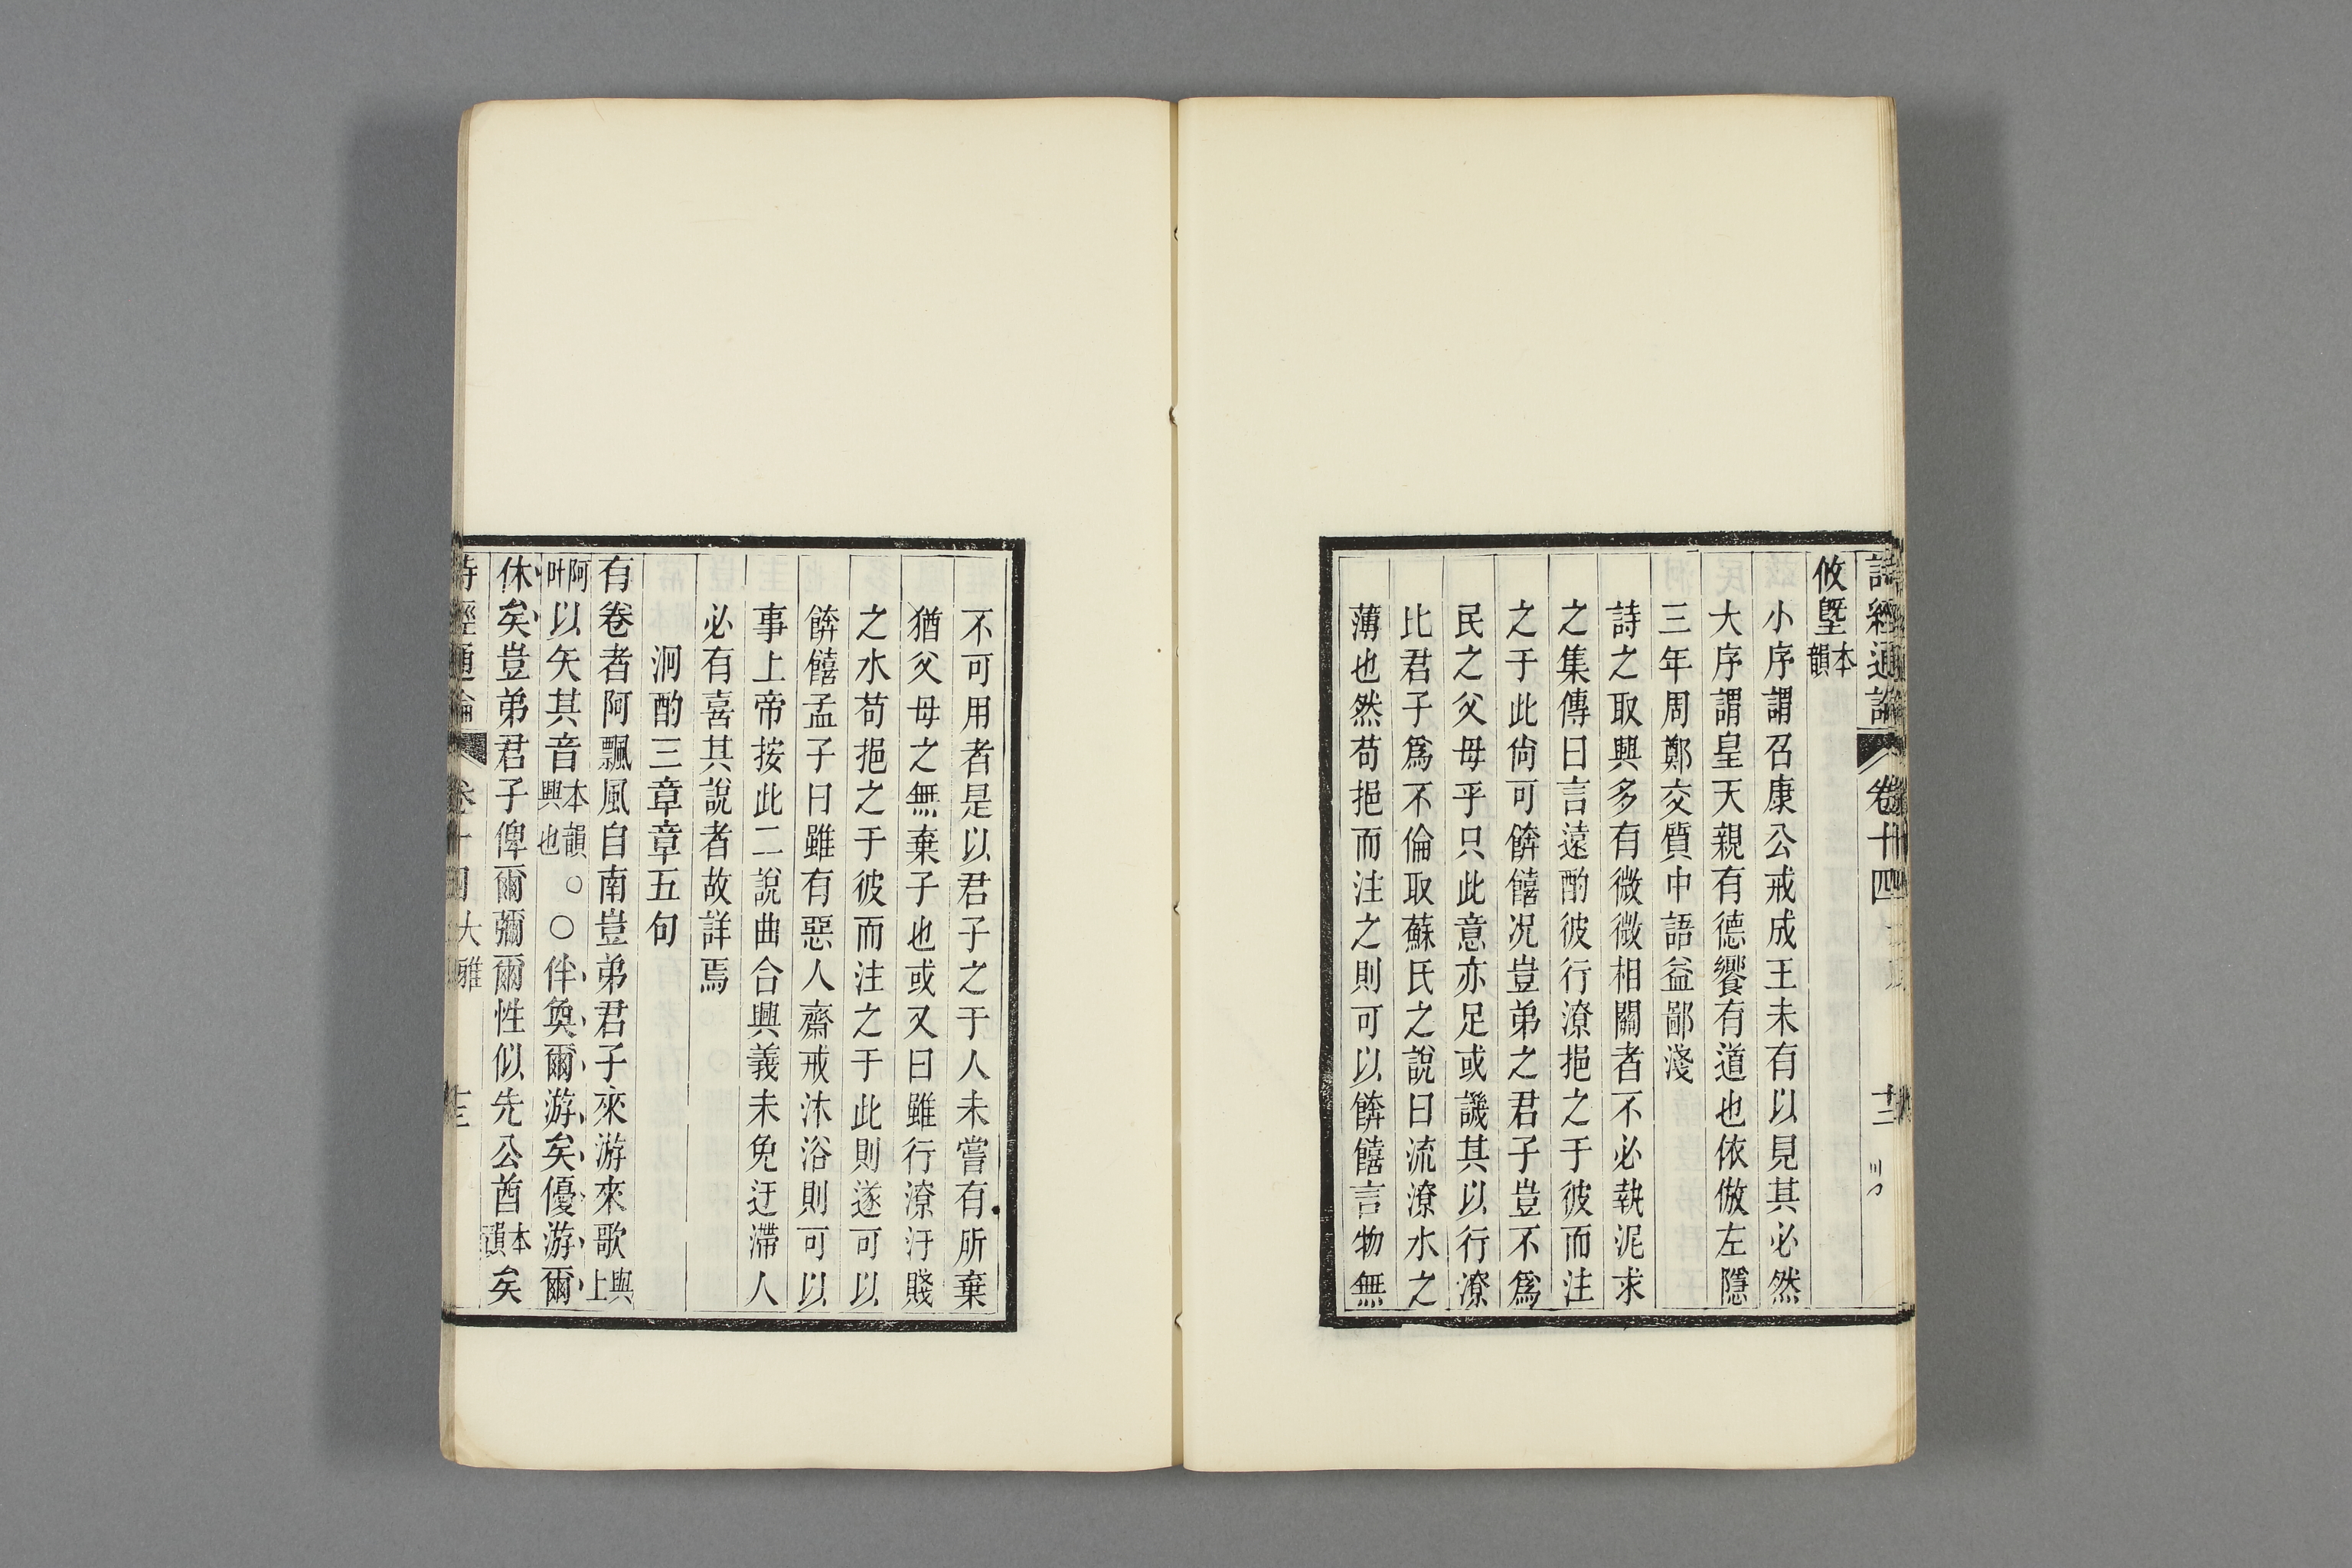 詩經通論 卷十四 十二
攸塈本韻
小序謂召康公戒成王未有以見其必然
大序謂皇天親有德饗有道也依倣左隱
三年周鄭交質中語益鄙淺
詩之取興多有微微相關者不必執泥求
之集傳曰言遠酌彼行潦挹之于彼而注
之于此尙可餴饎况豈弟之君子豈不爲
民之父母乎只此意亦足或譏其以行潦
比君子爲不倫取蘇氏之說曰流潦水之
薄也然苟挹而注之則可以餴饎言物無
不可用者是以君子之于人未嘗有所棄
猶父母之無棄子也或又曰雖行潦汙賤
之水苟挹之于彼而注之于此則遂可以
餴饎孟子曰雖有惡人齋戒沐浴則可以
事上帝按此二說曲合興義未免迂滯人
必有喜其說者故詳焉
泂酌三章章五句
有卷者阿飄風自南豈弟君子來游來歌與上
阿叶以矢其音本韻興也。○伴奐爾游矣優游爾
休矣豈弟君子俾爾彌爾性似先公酋本韻矣
詩經通論 卷十四 大雅 十三